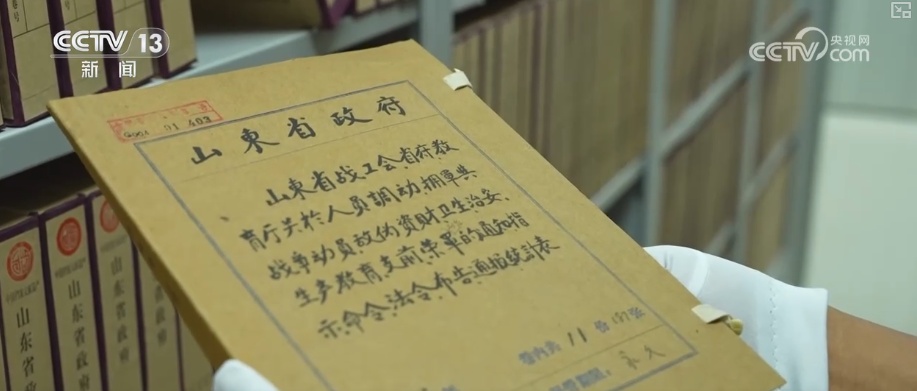 CCTV 13
新闻
CCTV 央视网
com
91 403
山東省政府
山東省战工会省府教
育厅关於人员調动拥軍典
战争动员敌伪資財卫生治安
生产教育支前荣軍的通知指
示命令法令布告通报統計表
卷内共 11 份 137张
永久
山东省政府
山东省政府